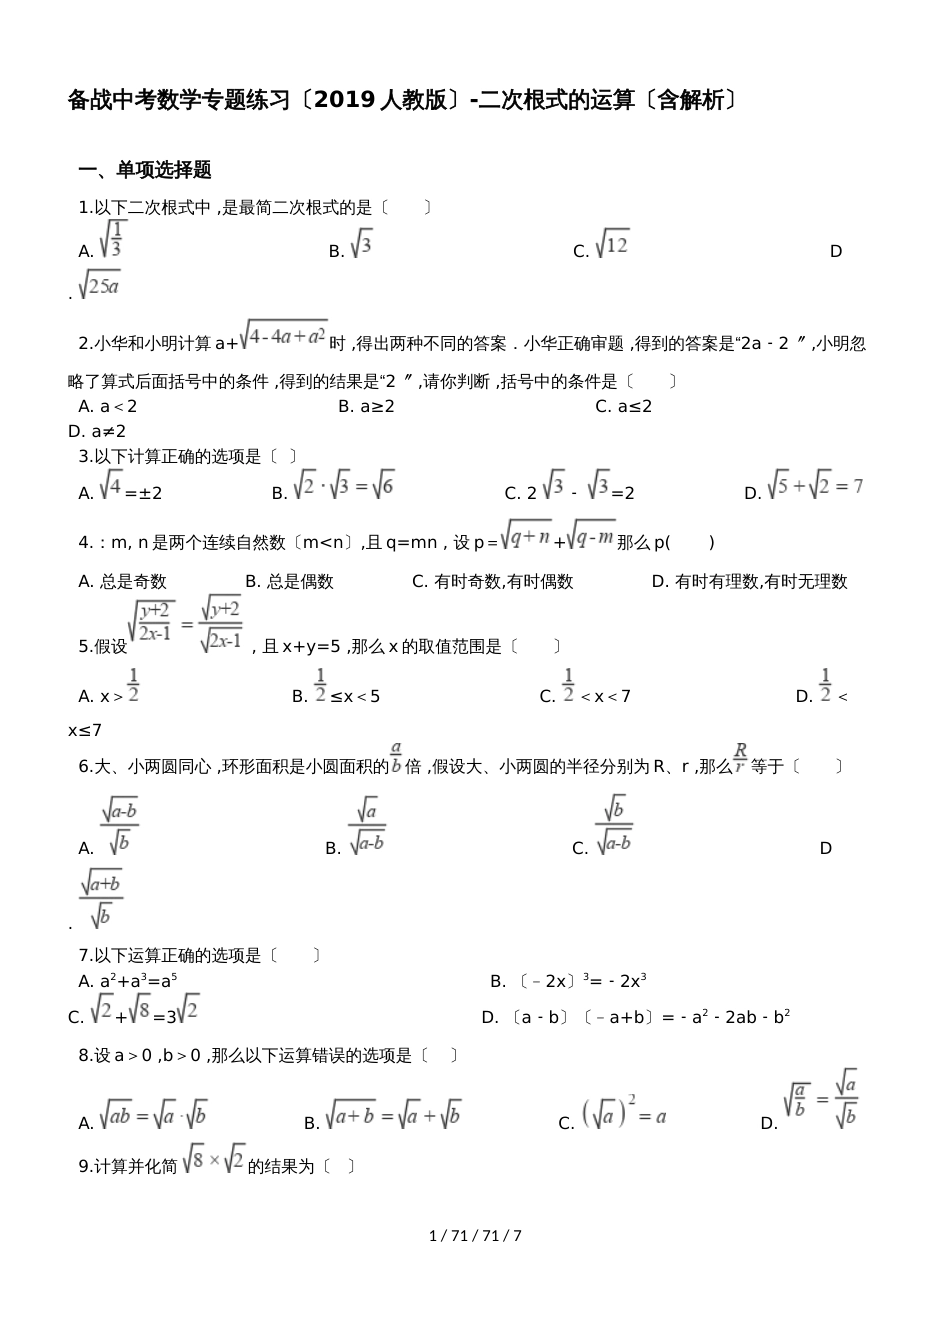 备战中考数学专题练习〔2019人教版〕-二次根式的运算〔含解析〕
一、单项选择题
1.以下二次根式中 ,是最简二次根式的是〔　　〕
A. √(1/3)　　B. √3　　C. √12　　D
. √(25a)
2.小华和小明计算 a+√(4-4a+a²)时 ,得出两种不同的答案．小华正确审题 ,得到的答案是“2a﹣2〞 ,小明忽
略了算式后面括号中的条件 ,得到的结果是“2〞 ,请你判断 ,括号中的条件是〔　　〕
A. a＜2　　B. a≥2　　C. a≤2
D. a≠2
3.以下计算正确的选项是〔 〕
A. √4=±2　　B. √2·√3=√6　　C. 2√3﹣√3=2　　D. √5+√2=7
4.：m, n 是两个连续自然数〔m<n〕,且 q=mn , 设 p＝√(q+n)+√(q-m)那么 p(　　)
A. 总是奇数　　B. 总是偶数　　C. 有时奇数,有时偶数　　D. 有时有理数,有时无理数
5.假设√((y+2)/(2x-1))=√(y+2)/√(2x-1) , 且 x+y=5 ,那么 x 的取值范围是〔　　〕
A. x＞1/2　　B. 1/2≤x＜5　　C. 1/2＜x＜7　　D. 1/2＜
x≤7
6.大、小两圆同心 ,环形面积是小圆面积的a/b倍 ,假设大、小两圆的半径分别为 R、r ,那么R/r等于〔　　〕
A. √(a-b)/√b　　B. √a/√(a-b)　　C. √b/√(a-b)　　D
. √(a+b)/√b
7.以下运算正确的选项是〔　　〕
A. a²+a³=a⁵　　B. 〔﹣2x〕³=﹣2x³
C. √2+√8=3√2　　D. 〔a﹣b〕〔﹣a+b〕=﹣a²﹣2ab﹣b²
8.设 a＞0 ,b＞0 ,那么以下运算错误的选项是〔　〕
A. √(ab)=√a·√b　　B. √(a+b)=√a+√b　　C. (√a)²=a　　D. √(a/b)=√a/√b
9.计算并化简 √8×√2的结果为〔 〕
1 / 71 / 71 / 7